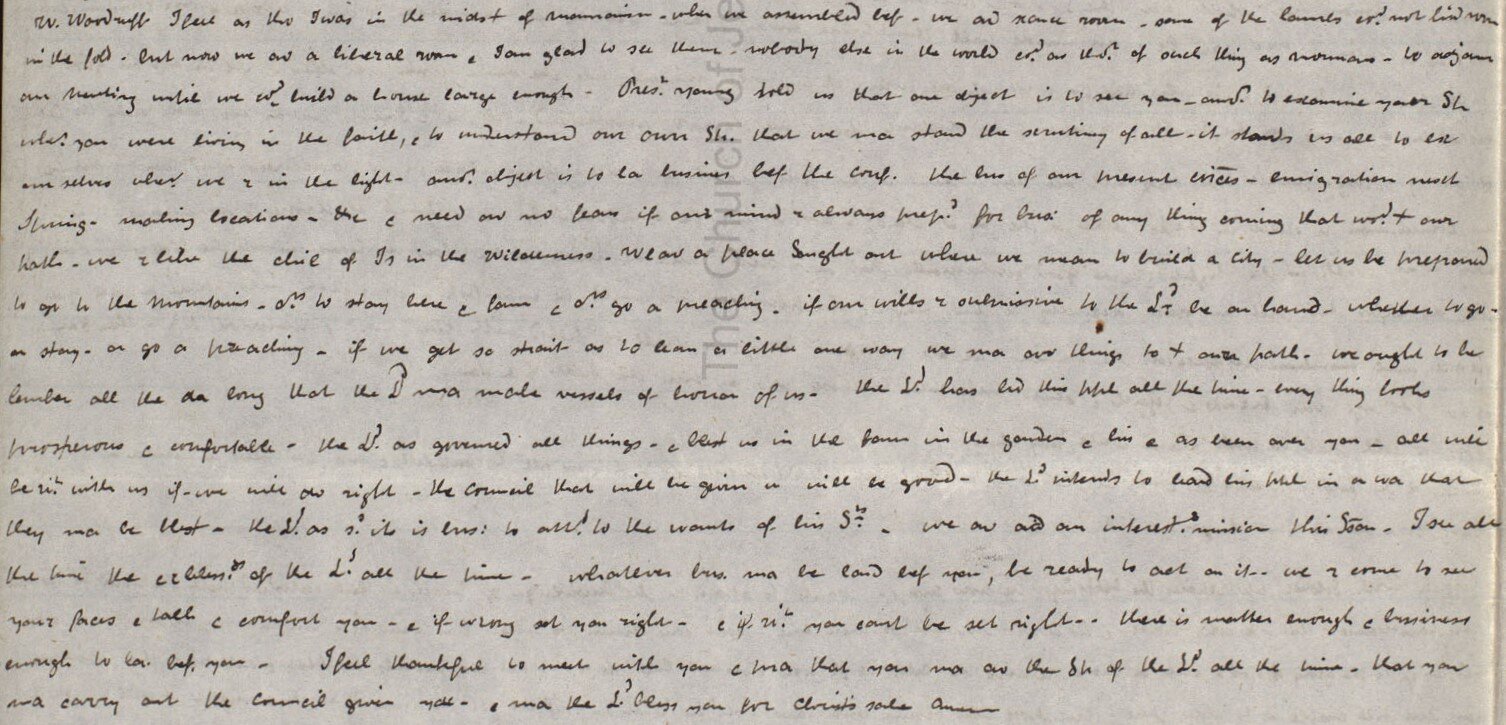 W. Woodruff I feel as tho I was in the midst of mormonism - when we assembled bef - we ad scarce room - some of the lambs co.d not find room
in the fold - but now we av a liberal room & I am glad to see them - nobody else in the world co.d av tho.t of such thing as mormons - to adjourn
our meeting until we co.d build a house large enough - Pres.t Young told us that one object is to see you - ano.r to examine your Sps
whe.r you were living in the faith, & to understand our own Sps. that we ma stand the scrutiny of all - it stands us all to ex
ourselves whe.r we r in the light - ano.r object is to la business bef the conf. the bus of our present - emigration next
Spring - making locations - &c & need av no fears if our mind r always prep.d for bus: of any thing coming that wo.d + our
path - we r like the chil of Is in the Wilderness - We av a place Sought out where we mean to build a city - let us be prepared
to go to the mountains - o.rs to stay here & farm & o.rs go a preaching - if our wills r submissive to the L.d be on hand - whether to go -
or stay - or go a preaching - if we get so strait as to lean a little one way we ma av things to + our path - we ought to be
limber all the da long that the L.d ma make vessels of honor of us - the L.d has led this ppl all the time - every thing looks
prosperous & comfortable - the L.d as governed all things - & blest us in the farm in the garden & as been over you - all will
be ri.t with us if we will do right - the council that will be given u will be good - the L.d intends to lead his ppl in a wa that
they ma be blest - the L.d as s.d its is bus: to att.d to the wants of his S.ts - we av ad an interest.g mission this Sson - I see all
the time the bless.gs of the L.d all the time - whatever bus. ma be laid bef you, be ready to act on it - we r come to see
your faces & talk & comfort you - & if wrong set you right - & if ri.t you cant be set right - there is matter enough & business
enough to la. bef. you - I feel thankful to meet with you & pra that you ma av the Sp of the L.d all the time - that you
ma carry out the council given you - & ma the L.d bless you for Christs sake Amen